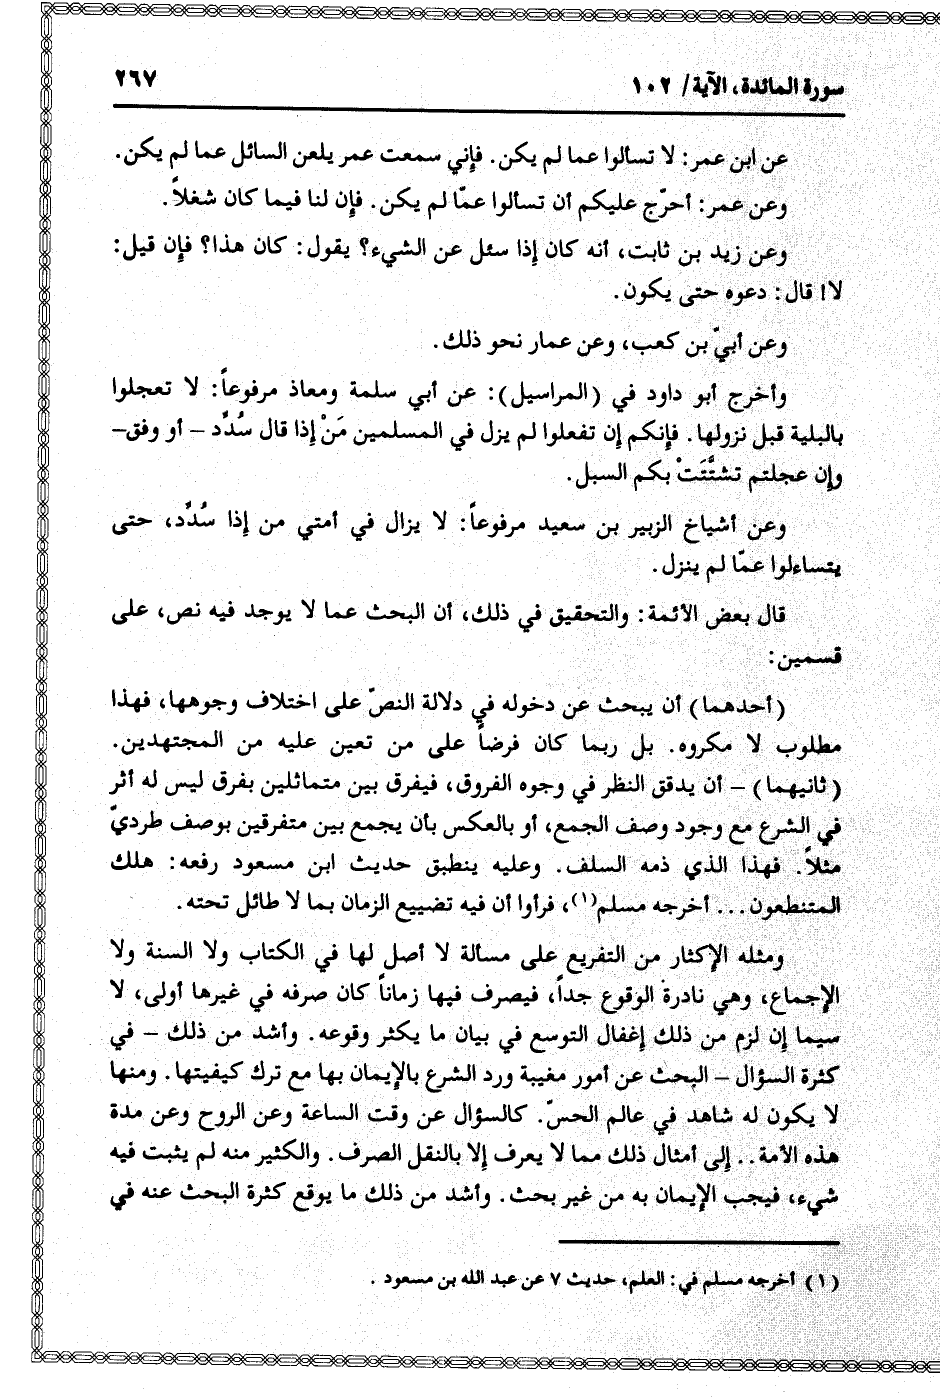 سورة المائدة، الآية/ ١٠٢
٢٦٧
عن ابن عمر: لا تسالوا عما لم يكن. فإني سمعت عمر يلعن السائل عما لم يكن.
وعن عمر: أحرّج عليكم أن تسألوا عمّا لم يكن. فإن لنا فيما كان شغلاً.
وعن زيد بن ثابت، أنه كان إذا سئل عن الشيء؟ يقول: كان هذا؟ فإن قيل:
لا! قال: دعوه حتى يكون.
وعن أبيّ بن كعب، وعن عمار نحو ذلك.
وأخرج أبو داود في (المراسيل): عن أبي سلمة ومعاذ مرفوعاً: لا تعجلوا
بالبلية قبل نزولها. فإنكم إن تفعلوا لم يزل في المسلمين مَنْ إذا قال سُدِّد – أو وفق–
وإن عجلتم تشتَّتَتْ بكم السبل.
وعن أشياخ الزبير بن سعيد مرفوعاً: لا يزال في أمتي من إذا سُدِّد، حتى
يتساءلوا عمّا لم ينزل.
قال بعض الأئمة: والتحقيق في ذلك، أن البحث عما لا يوجد فيه نص، على
قسمين:
(أحدهما) أن يبحث عن دخوله في دلالة النصّ على اختلاف وجوهها، فهذا
مطلوب لا مكروه. بل ربما كان فرضاً على من تعين عليه من المجتهدين.
(ثانيهما) – أن يدقق النظر في وجوه الفروق، فيفرق بين متماثلين بفرق ليس له أثر
في الشرع مع وجود وصف الجمع، أو بالعكس بأن يجمع بين متفرقين بوصف طرديّ
مثلاً. فهذا الذي ذمه السلف. وعليه ينطبق حديث ابن مسعود رفعه: هلك
المتنطعون... أخرجه مسلم(١)، فرأوا أن فيه تضييع الزمان بما لا طائل تحته.
ومثله الإكثار من التفريع على مسألة لا أصل لها في الكتاب ولا السنة ولا
الإجماع، وهي نادرة الوقوع جداً، فيصرف فيها زماناً كان صرفه في غيرها أولى، لا
سيما إن لزم من ذلك إغفال التوسع في بيان ما يكثر وقوعه. وأشد من ذلك – في
كثرة السؤال – البحث عن أمور مغيبة ورد الشرع بالإيمان بها مع ترك كيفيتها. ومنها
لا يكون له شاهد في عالم الحسّ. كالسؤال عن وقت الساعة وعن الروح وعن مدة
هذه الأمة.. إلى أمثال ذلك مما لا يعرف إلا بالنقل الصرف. والكثير منه لم يثبت فيه
شيء، فيجب الإيمان به من غير بحث. وأشد من ذلك ما يوقع كثرة البحث عنه في
(١) أخرجه مسلم في: العلم، حديث ٧ عن عبد الله بن مسعود .